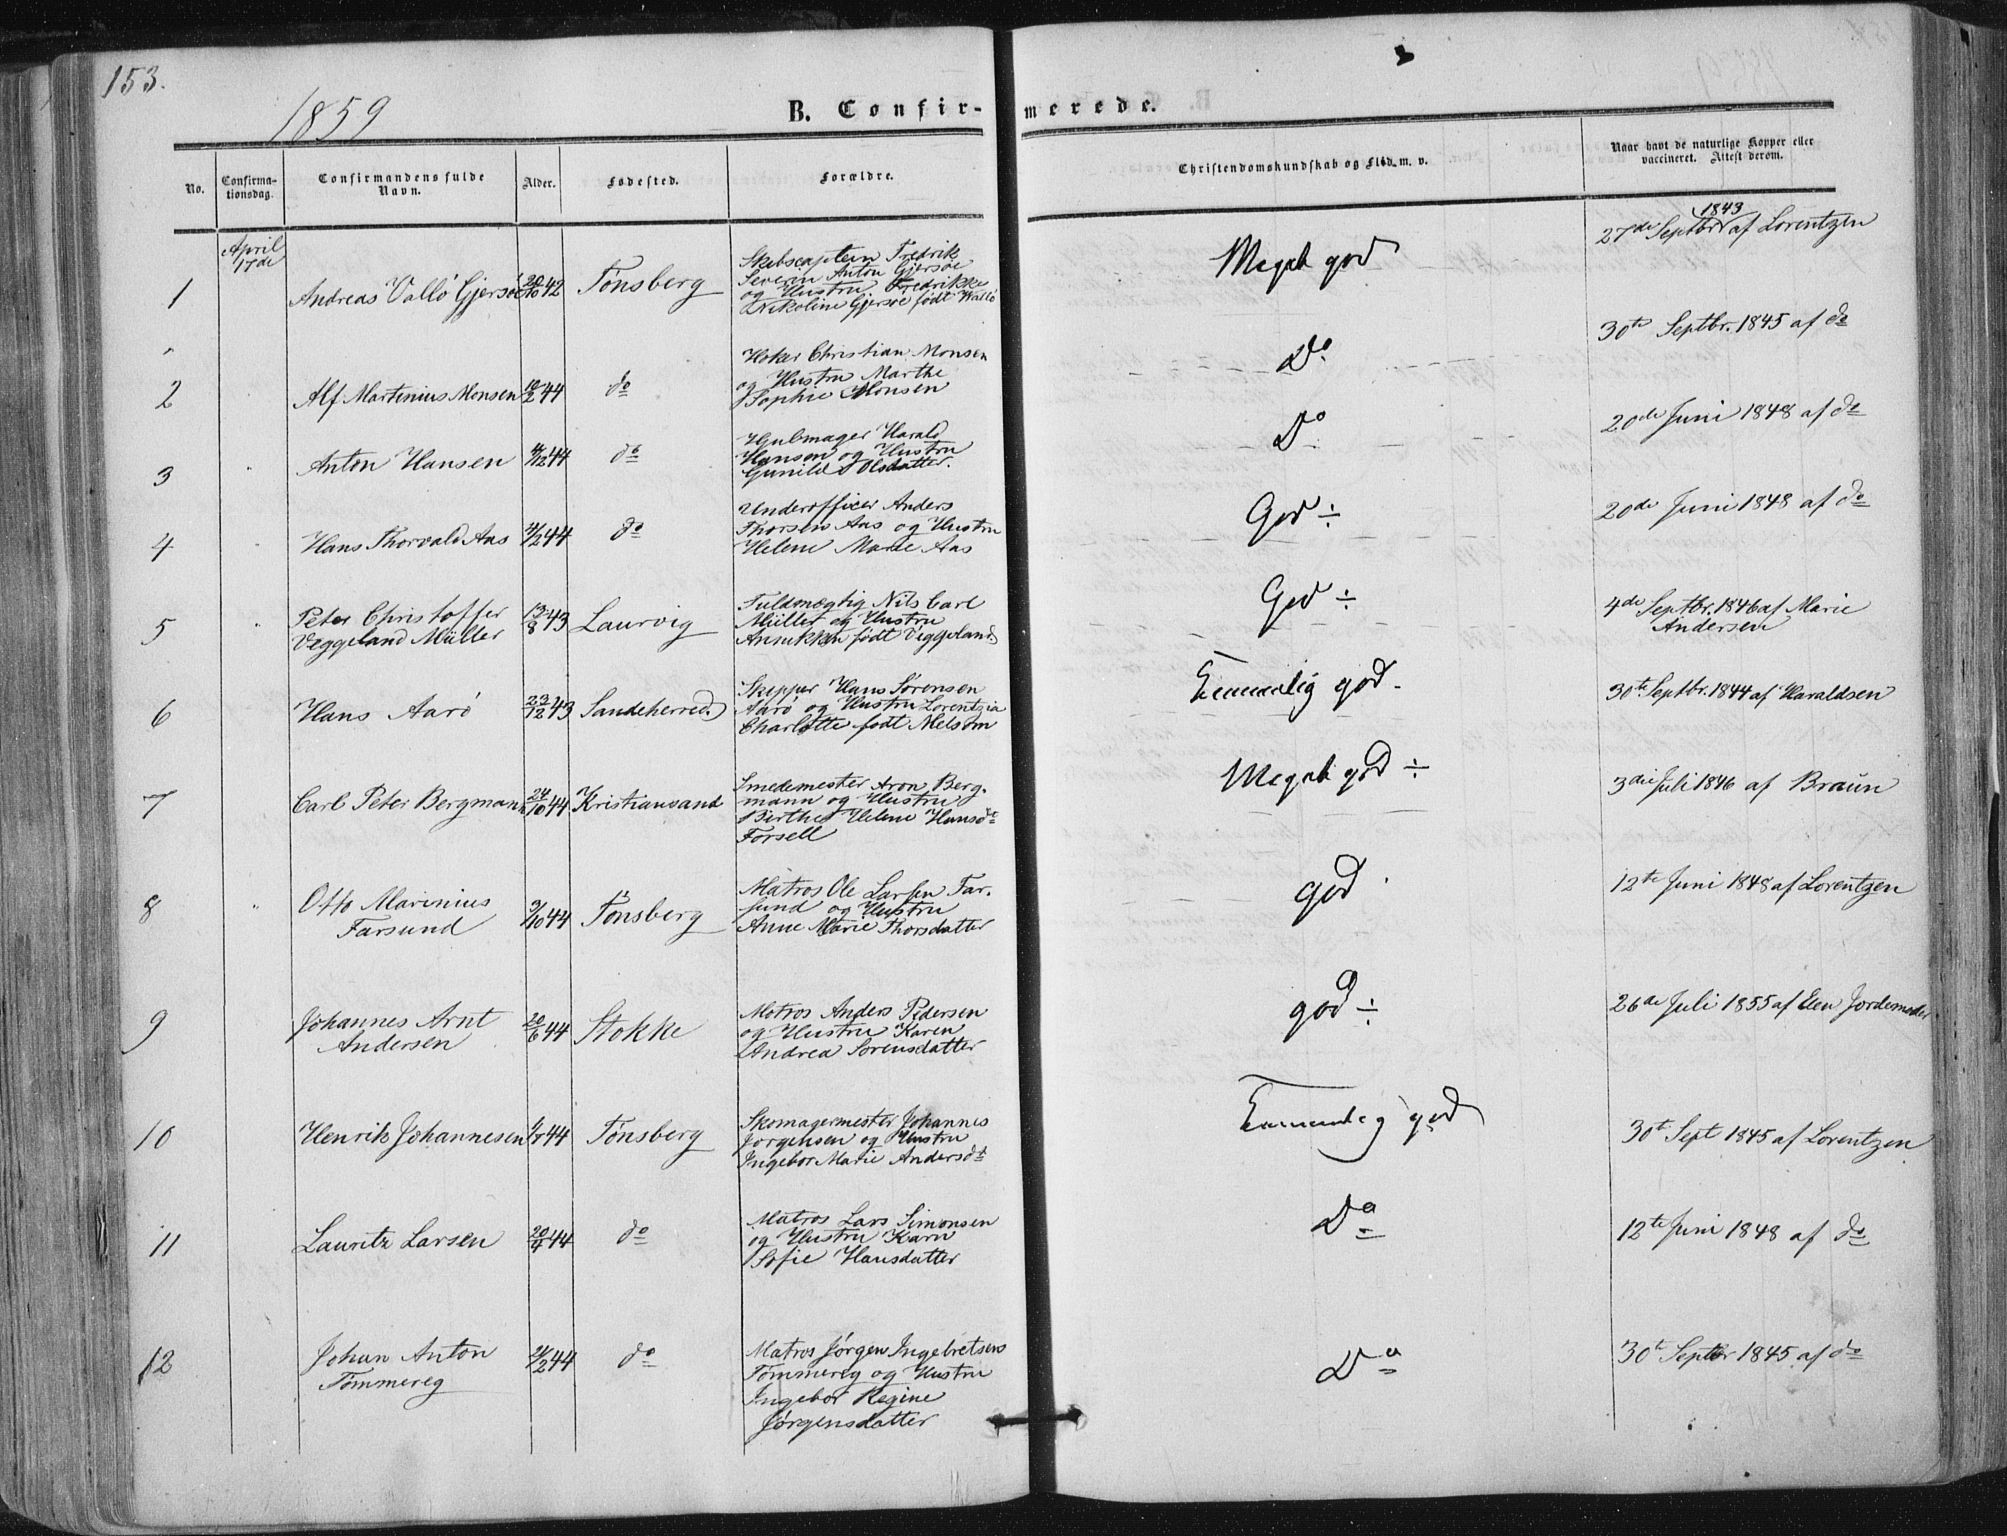 153.
1859
B. Confir-
merede.
No.
Confirma-
tionsdag.
Confirmandens fulde
Navn.
Alder.
Fødested.
Forældre.
Christendomskundskab og Flid m. v.
Naar havt de naturlige Kopper eller
vaccineret. Attest derom.
April
17de
1
Andreas Vallö Gjersöe
20/10 42
Tönsberg
Skibscaptein Fredrik
Severin Anton Gjersöe
og Hustru Fredrikke
Nikoline Gjersöe født Wallö
Meget god
27de Septbr 1843 af Lorentzen
2
Alf Martinius Monsen
10/2 44
do
Høker Christian Monsen
og Hustru Marthe
Sophie Monsen
Do
30te Septbr. 1845 af do
3
Anton Hansen
4/12 44
do
Hjulmager Harald
Hansen og Hustru
Gunild Olsdatter.
Do
20de Juni 1848 af do
4
Hans Thorvald Aas
do
Underofficer Anders
Thorsen Aas og Hustru
Helene Marie Aas
God ÷
20de Juni 1848 af do
5
Peter Christoffer
Veggeland Müller
13/8 43
Laurvig
Fuldmægtig Nils Carl
Müller og Hustru
født Veggeland
God ÷
4de Septbr. 1846 af Marie
Andersen
6
Hans Aarö
23/12 43
Sandeherred
Skipper Hans Sørensen
Aarø og Hustru Lorentzia
Charlotte født Melsom
Temmelig god.
30te Septbr. 1844 af Haraldsen
7
Carl Peter Bergmann
24/10 44
Kristiansand
Smedemester Aron Berg-
mann og Hustru
Birthe Helene Hansdt
Forsell
Meget god ÷
3die Juli 1846 af Braun
8
Otto Marinius
Farsund
9/10 44
Tönsberg
Matros Ole Larsen Far-
sund og Hustru
Anne Marie Thorsdatter
god
12te Juni 1848 af Lorentzen
9
Johannes Arnt
Andersen
20/6 44
Stokke
Matros Anders Pedersen
og Hustru Karen
Andrea Sorensdatter
god ÷
26de Juli 1855 af Elen Jordemoder
10
Henrik Johannesen
44
Tönsberg
Skomagermester Johannes
Jørgensen og Hustru
Ingebor Marie Andersdt
Temmelig god
30t Sept 1845 af Lorentzen
11
Lauritz Larsen
20/4 44
do
Matros Lars Simonsen
og Hustru Karn
Sofie Hansdatter
Do
12te Juni 1848 af do
12
Johan Anton
Tömmereg
44
do
Matros Jørgen Ingebretsens
Tömmereg og Hustru
Ingebor Regine
Jørgensdatter
Do
30t Septbr 1845 af do